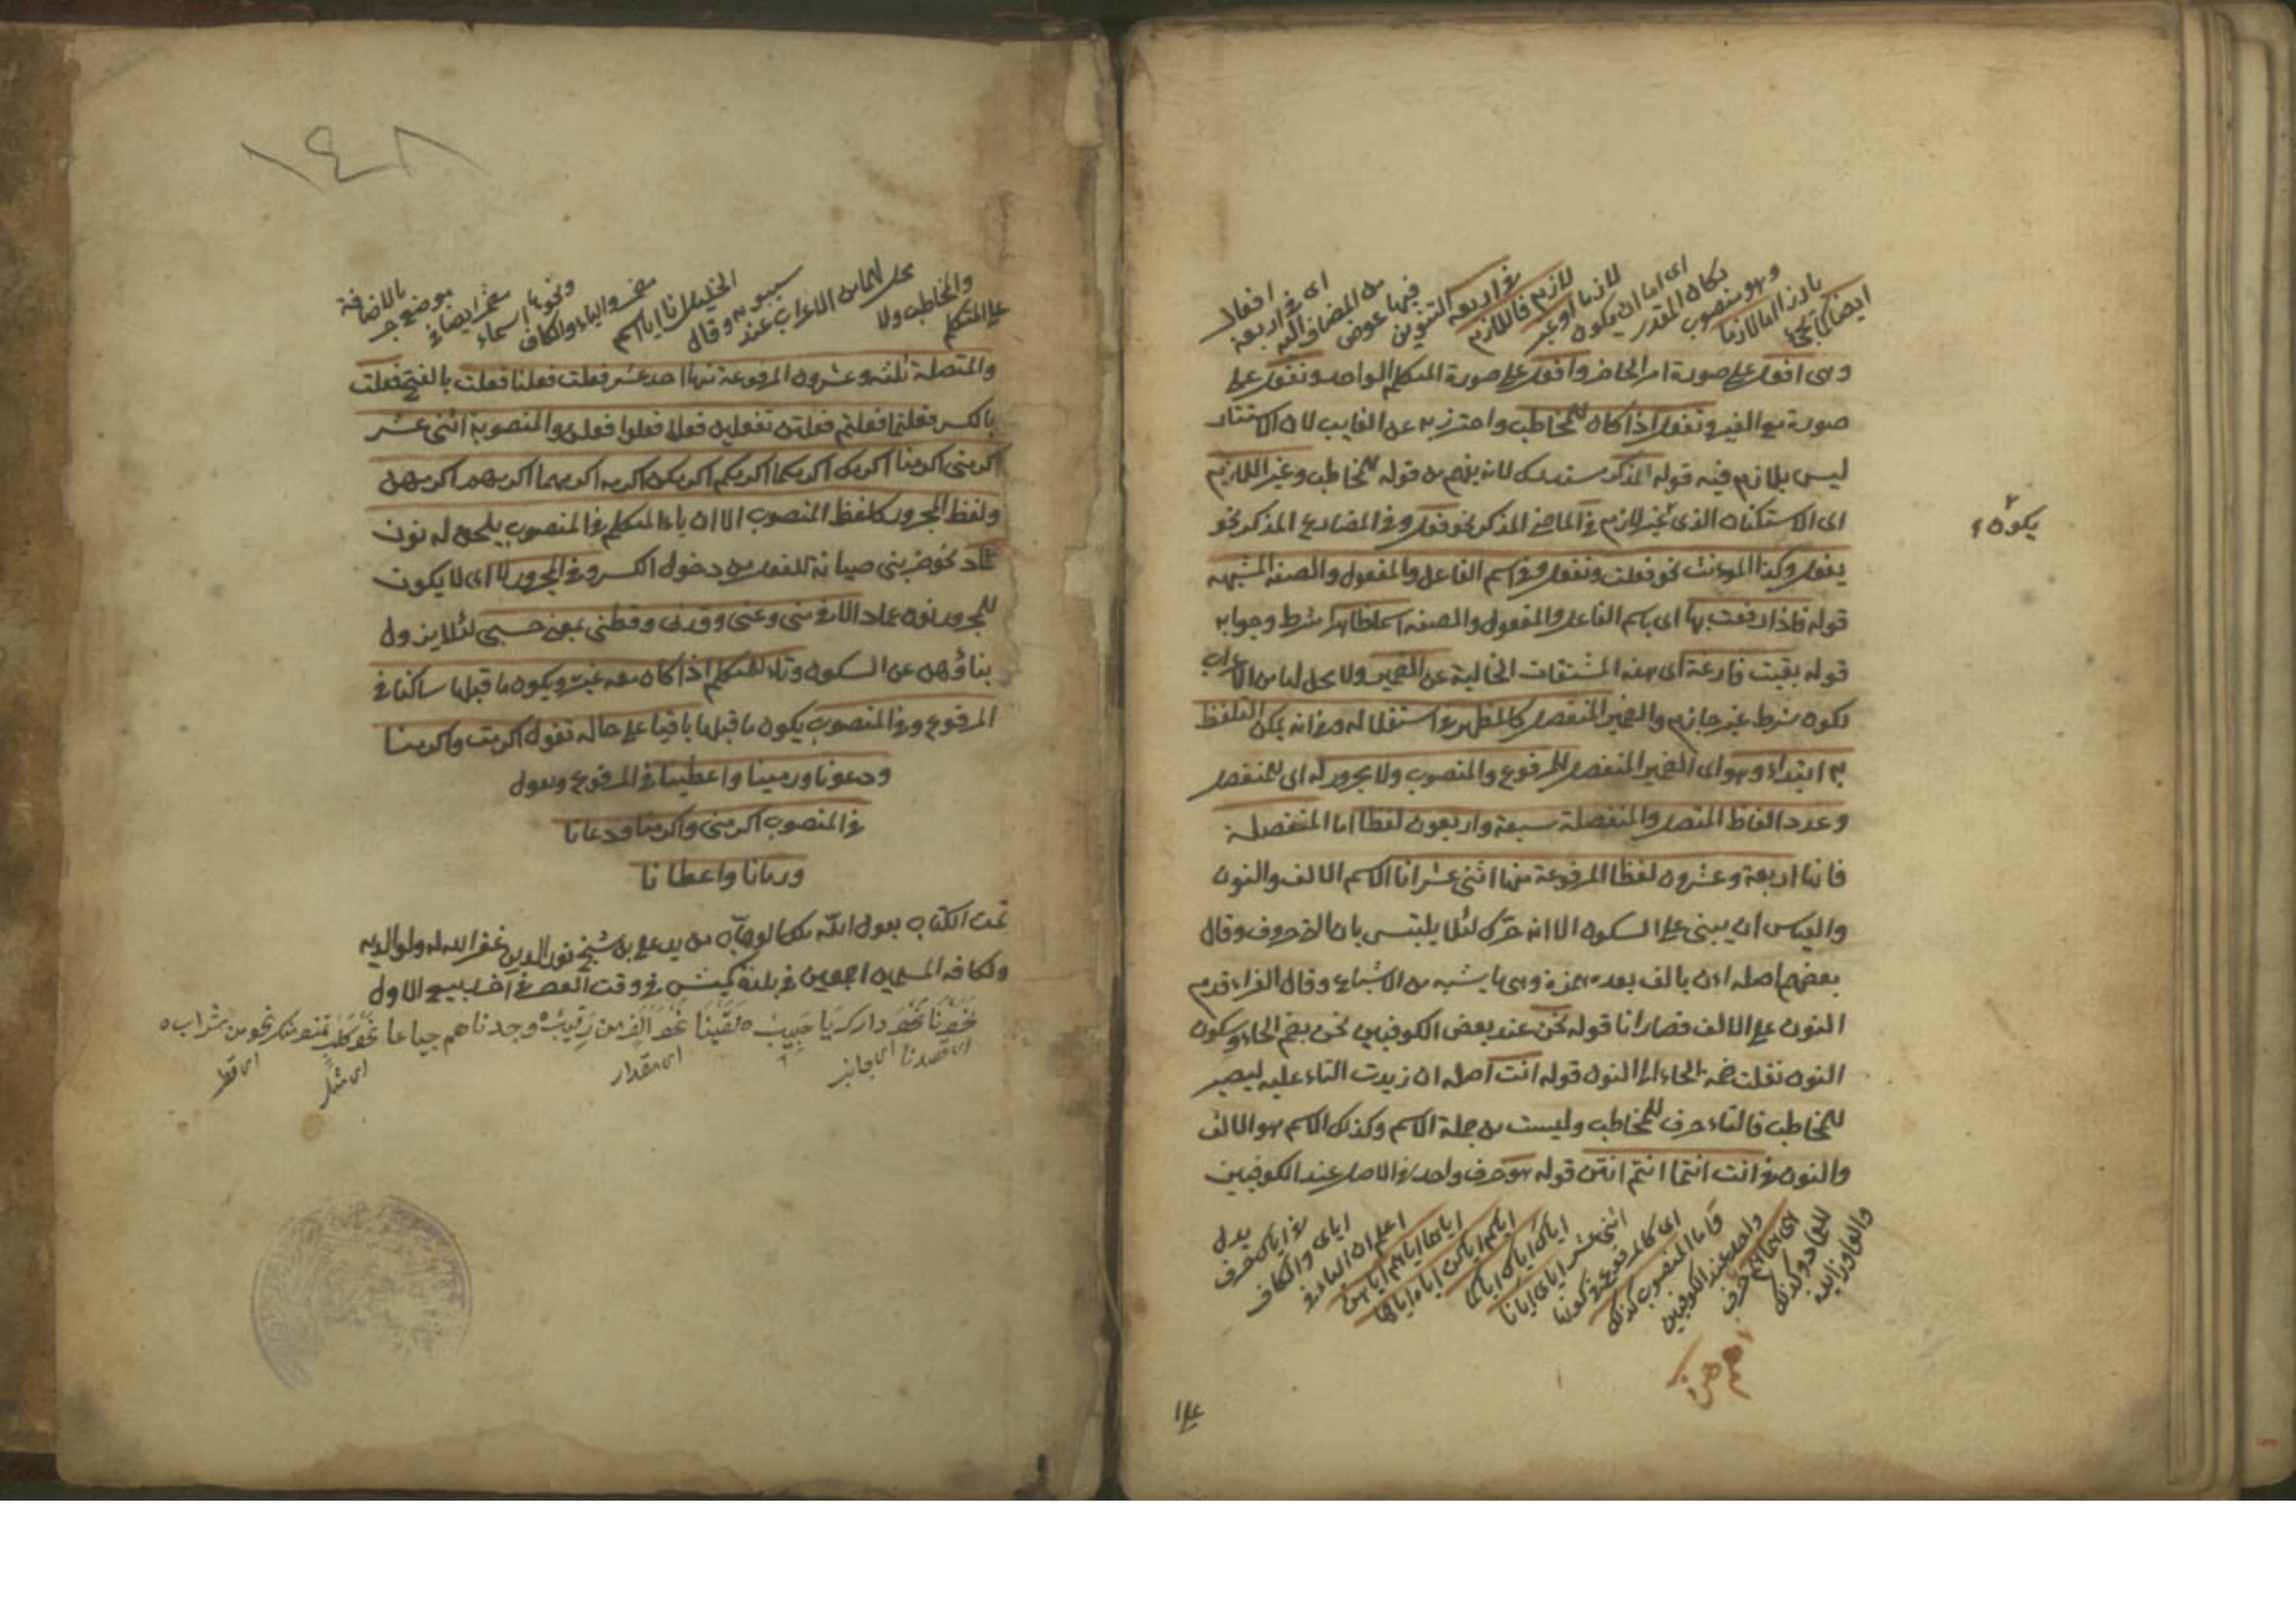 ايضا كما تجئ
بارزا اما لازما
وهو منصوب
بكان المقدر
اى اما ان يكون
لازما او غير
لازم فاللازم
فى اربعة
التنوين
فيها عوض
من المضاف اليه
اى فى اربعة
افعال
وهى افعل على صورة امر الحاضر وافعل على صورة المتكلم الواحد ونفعل على
صورة مع الغير وتفعل اذا كان للمخاطب واحترز به عن الغايب لان الاستتار
ليس بلازم فيه قوله المذكر مستدرك لانه يفهم من قوله للمخاطب وغير اللازم
اى الاستكنان الذى غير لازم فى الماضى المذكر نحو فعل وفى المضارع المذكر نحو
يكون
يفعل وكذا المونث نحو فعلت وتفعل وفى اسم الفاعل والمفعول والصفة المشبهه
قوله فاذا رفعت بها اى باسم الفاعل والمفعول والصفة اسما ظاهرا شرط وجوابه
قوله بقيت فارغة اى هذه المشتقات الخالية عن الضمير ولا محل لها من الاعراب
لكون شرط غير جازم والضمير المنفصل كالمظهر فى استقلاله وفى انه يمكن التلفظ
به ابتداء وهو اى الضمير المنفصل للمرفوع والمنصوب ولا مجرور له اى للمنفصل
وعدد الفاظ المتصل والمنفصلة سبعة واربعون لفظا اما المنفصلة
فانها اربعة وعشرون لفظا المرفوعة منها اثنى عشر انا الاسم الالف والنون
والقياس ان يبنى على السكون الا انه حرك لئلا يلتبس بان الحروف وقال
بعضهم اصله اان بالف بعده همزة وهى ما يشبه من الاشباع وقال الفراء قدم
النون على الالف فصار انا قوله نحن عند بعض الكوفيين نحن بضم الحاء وسكون
النون نقلت ضمة الحاء الى النون قوله انت اصله ان زيدت التاء عليه ليصير
للمخاطب فالتاء حرف للمخاطب وليست من جملة الاسم وكذلك الاسم هو الالف
والنون فى انت انتما انتم انتن قوله هو حرف واحد فى الاصل عند الكوفيين
والواو زايدة
للعماد وكذلك
اى هما هم حرف
واحد عند الكوفيين
واما المنصوب كذلك
اى كالمرفوع فى كونها
اثنى عشر اياى ايانا
اياك اياك اياكما
اياكم اياكن اياه اياها
اياهما اياهم اياهن
اعلم ان الياء فى
اياى والكاف
فى اياك حرف
يدل
على
على المتكلم
والمخاطب ولا
محل لها من الاعراب عند
سيبويه وقال
الخليل انا ايا اسم
مضمر والياء والكاف
ونحوها اسماء
مضمر ايضا فى
موضع جر
بالاضافة
والمتصلة ثلثه وعشرون المرفوعة منها احد عشر فعلت فعلنا فعلت بالفتح فعلت
بالكسر فعلتما فعلتم فعلتن تفعلين فعلا فعلوا فعلن والمنصوبة اثنى عشر
اكرمنى اكرمنا اكرمك اكرمكما اكرمكم اكرمكن اكرمه اكرمهما اكرمهم اكرمهن
ولفظ المجرور كلفظ المنصوب الا ان ياء المتكلم فى المنصوب يلحق له نون
عماد نحو ضربنى صيانة للفعل من دخول الكسر وفى المجرور لا اى لا يكون
للمجرور نون عماد الا فى منى وعنى وقدنى وقطنى بمعنى حسبى لئلا يزول
بناؤهن عن السكون وتاء المتكلم اذا كان معه غيره ويكون ما قبلها ساكنا فى
المرفوع وفى المنصوب يكون ما قبلها باقيا على حاله تقول اكرمت واكرمنا
ودعونا ورمينا واعطينا فى المرفوع وتقول
فى المنصوب اكرمنى واكرمنا ودعانا
ورمانا واعطانا
تمت الكتاب بعون الله ملك الوهاب من يد على بن شيخ نور الدين غفر الله له ولوالديه
ولكافة المسلمين اجمعين فى بلدة فى وقت العصر فى اخر ربيع الاول
نحونا نحو دارك يا حبيب لقينا نحو الف من رقيب وجدناهم جياعا نحو كلب تمنو منك نحو من شراب
اى قصدنا اى جانب اى مقدار اى مثل اى قط
١٤٨